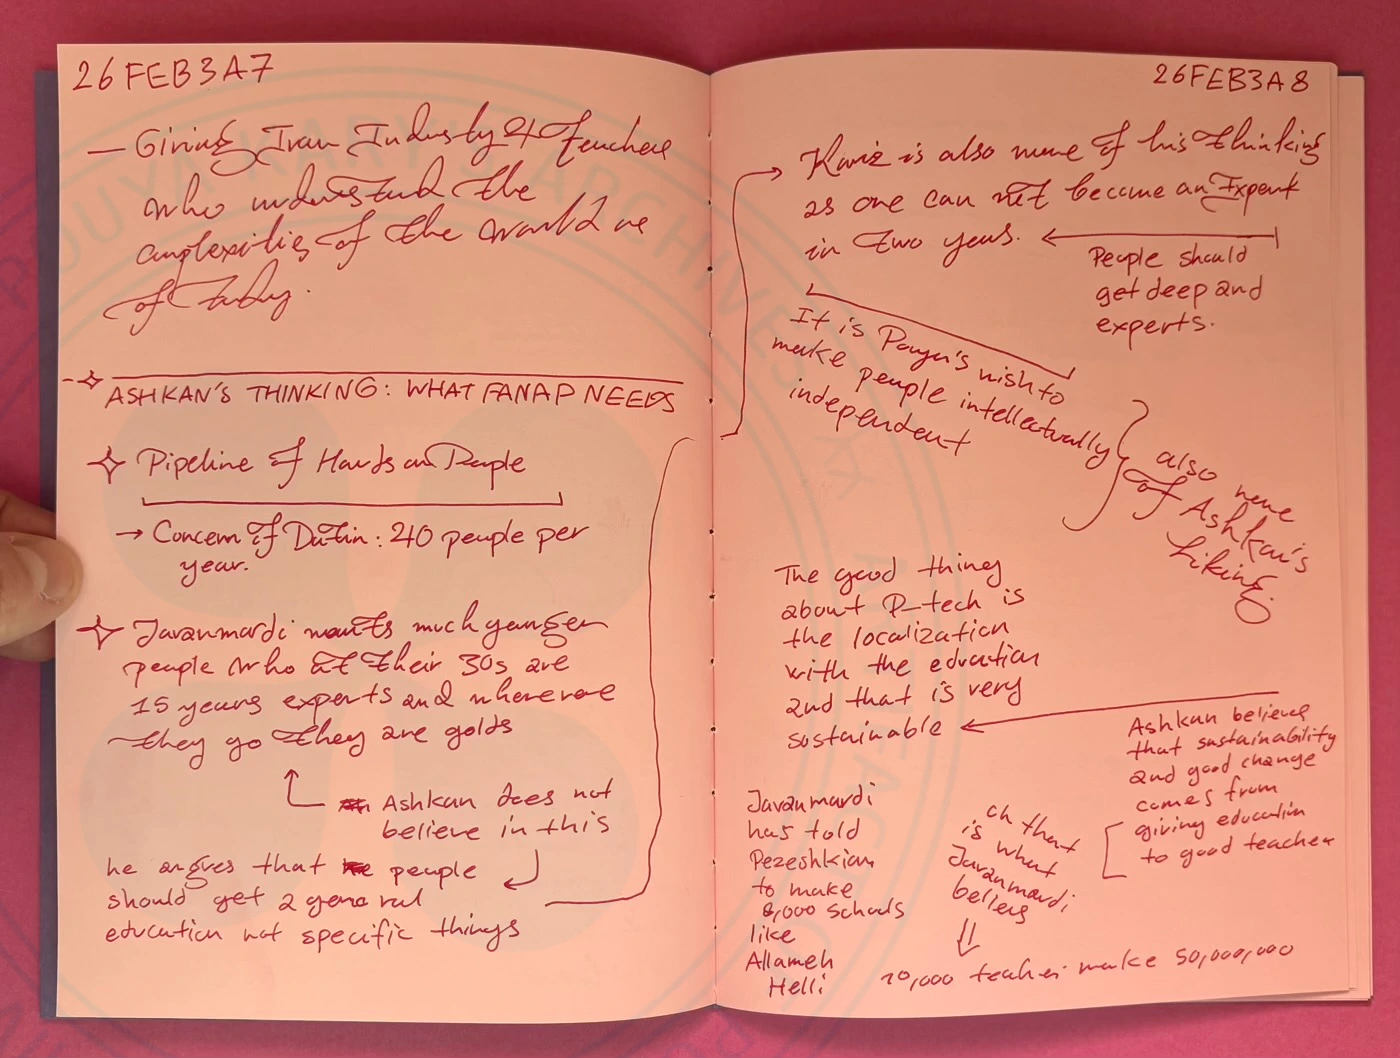 26FEB3A7
— Giving Iran Industry 4 Teachers
who understand the
complexities of the world as
of today.
ASHKAN'S THINKING: WHAT FANAP NEEDS
Pipeline of Hands on People
→ Concern of Datin: 40 people per
year.
Javanmardi wants much younger
people who at their 30s are
15 years experts and wherever
they go they are golds
Ashkan does not
believe in this
he argues that people
should get a general
education not specific things
26FEB3A8
Kariz is also more of his thinking
as one can not become an Expert
in two years.
People should
get deep and
experts.
It is Pouya's wish to
make people intellectually
independent
also more
of Ashkan's
liking.
The good thing
about P-tech is
the localization
with the education
and that is very
sustainable
Ashkan believes
that sustainability
and good change
comes from
giving education
to good teacher
Javanmardi
has told
Pezeshkian
to make
8,000 schools
like
Allameh
Helli
oh that
is what
Javanmardi
believes
10,000 teacher make 50,000,000
POUYA KARY'S ARCHIVES